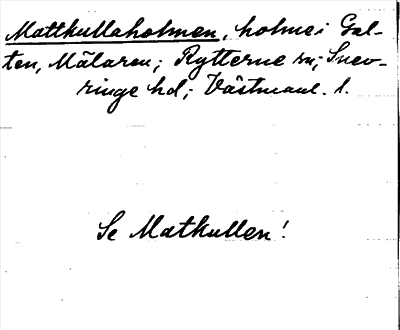 Mattkullaholmen, holme i Gal-
ten, Mälaren; Rytterne sn; Snev-
ringe hd; Västmanl. l.
Se Matkullen!